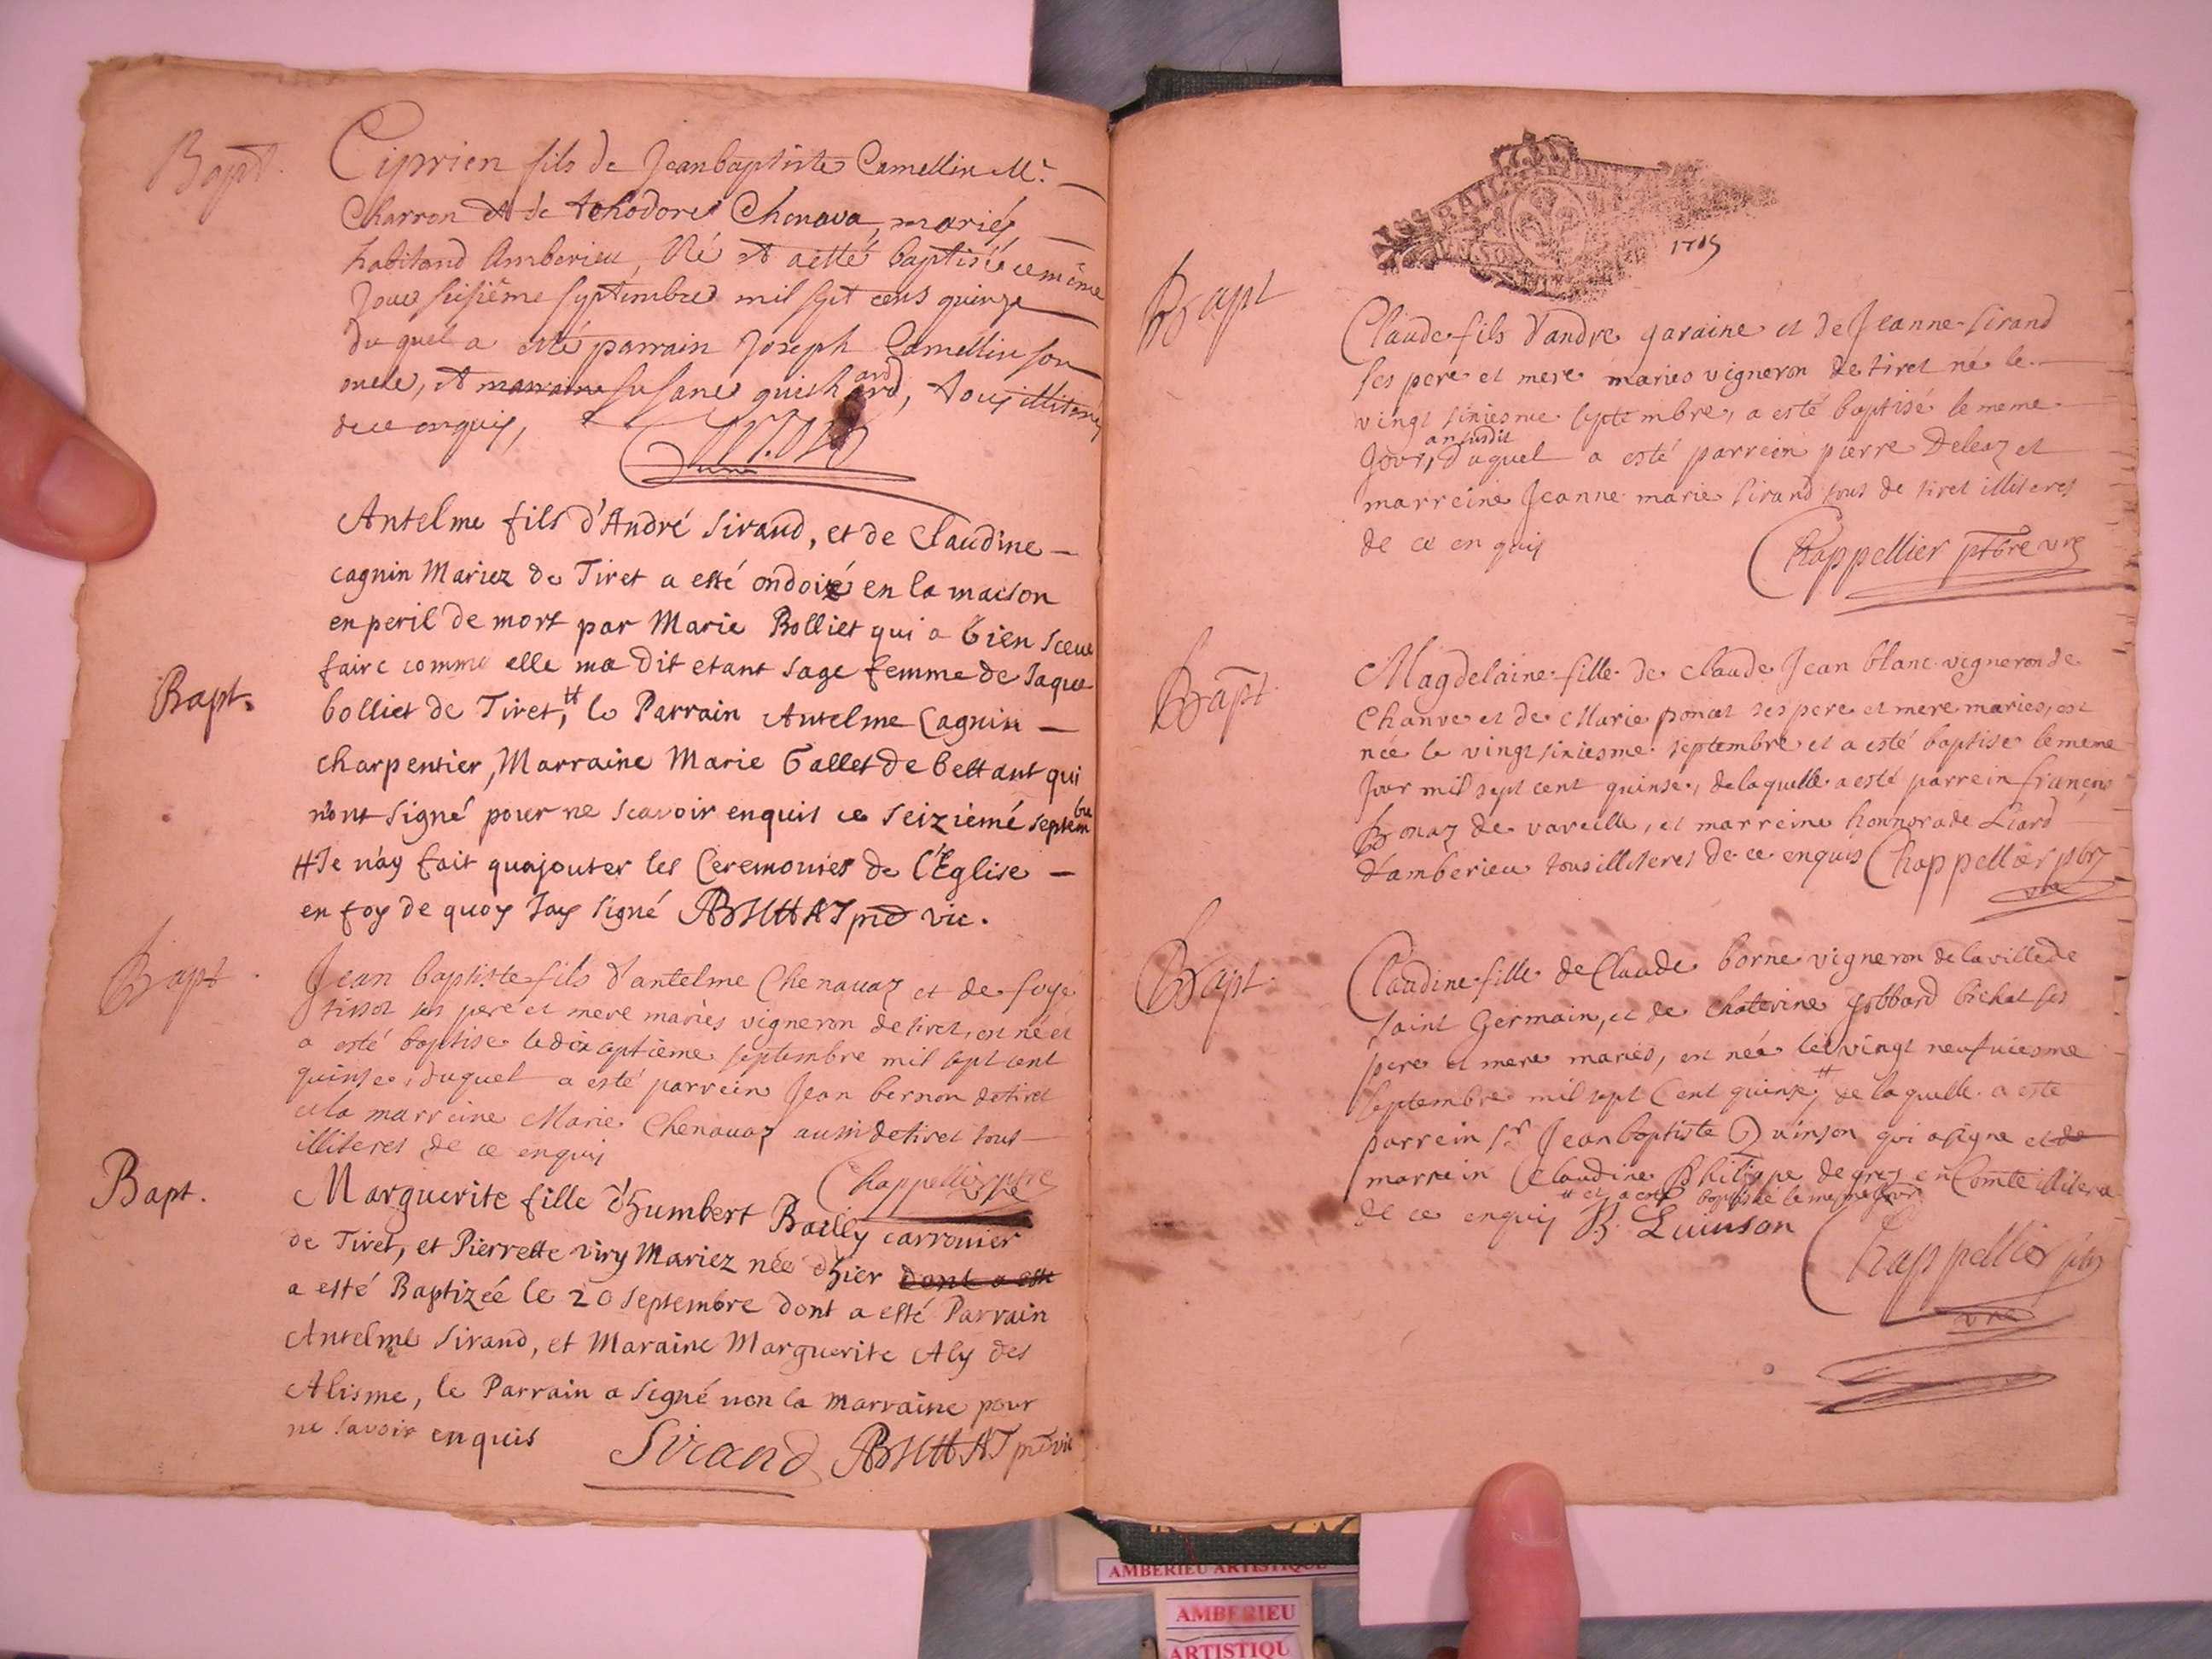 Bapt.
Ciprien fils de Jeanbaptiste Camellin Mr.
Charron et de tehodore Chenava, mariés
habitand Amberieu, Né et aetté baptiséé ce méme
Jour seisiême septembre mil sept cens quinze
du quel a esté parrain Joseph Camellin son
oncle, et marraine susane guichard, tous illiteres
de ce enquis,
Antelme fils d'André Sirand, et de Claudine
cagnin Mariez de Tiret a esté ondoié en la maison
en peril de mort par Marie Bolliet qui a bien sceu
faire comme elle ma dit etant sage femme de Jaque
Bapt.
bolliet de Tiret, # le Parrain Antelme Cagnin
charpentier, Marraine Marie Gallet de bettant qui
n'ont signé pour ne scavoir enquis ce seizième septembre
# Je n'ay fait quajouter les Ceremonies de l'Eglise
en foy de quoy Jay signé vic.
Bapt.
Jean baptiste fils d'antelme Chenavaz et de
tissot ses pere et mere mariés vigneron de tiret, est né et
a esté baptise le dixseptième septembre mil sept cent
quinse, duquel a esté parrein Jean bernon de tiret
et la marreine Marie Chenavaz aussi de tiret tous
illiteres de ce enquis
Chappellier ptre
vre
Bapt.
Marguerite fille d'humbert Bailly carronier
de Tiret, et Pierrette viry Mariez née d'hier dont a esté
a esté Baptizéé le 20 septembre dont a esté Parrain
Antelme Sirand, et Maraine Marguerite Aly des
Alisme, le Parrain a signé non la marraine pour
ne savoir enquis
Sirand vic
1715
Bapt
Claude fils d'andre garaine et de Jeanne sirand
ses pere et mere maries vigneron de tiret né le
vingt sixiesme septembre, a esté baptisé le meme
Jour, an susdit duquel a esté parrein pierre Deleaz et
marreine Jeanne marie sirand tous de tiret illiteres
de ce enquis
Chappellier ptbre vre
Bapt.
Magdelaine fille de claude Jean blanc vigneron de
Chanves et de Marie poncet ses pere et mere maries, est
née le vingt sixiesme septembre et a esté baptise le meme
Jour mil sept cent quinse, de laquelle a esté parrein françois
Bonaz de vareille, et marreine honnorade Liard
d'amberieu tous illiteres de ce enquis Chappellier pbr
vre
Bapt.
Claudine fille de Claude borne vigneron de la ville de
saint Germain, et de Chaterine gobbard bichat ses
pere et mere mariés, est née le vingt neufuiesme
septembre mil sept Cent quinse, # de laquelle a este
parrein sr Jean baptiste Quinson qui a signe et de
marrein Claudine Philippe de grez en Comté illitere
# et a esté baptisée le mesme jour
de ce enquis B. Quinson
Chappellier pbr
vre
AMBERIEU ARTISTIQUE
AMBERIEU
ARTISTIQU